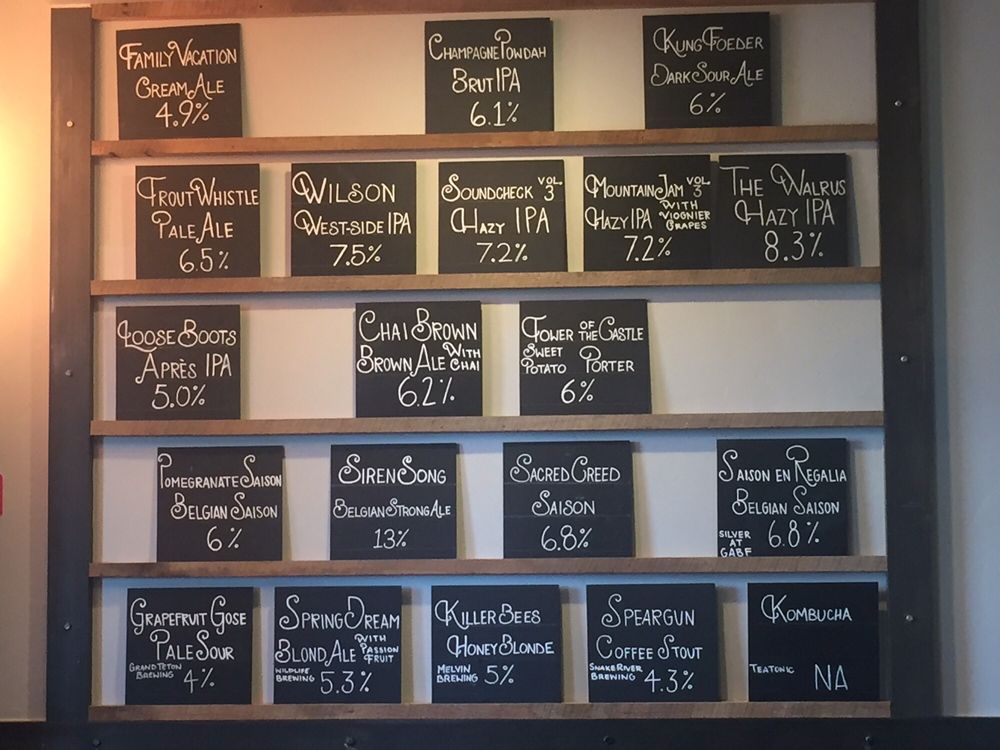 Family Vacation
Cream Ale
4.9%
Champagne Powdah
Brut IPA
6.1%
Kung Foeder
Dark Sour Ale
6%
Trout Whistle
Pale Ale
6.5%
Wilson
West-Side IPA
7.5%
Soundcheck Vol. 3
Hazy IPA
7.2%
Mountain Jam Vol. 3
Hazy IPA with Viognier Grapes
7.2%
The Walrus
Hazy IPA
8.3%
Loose Boots
Après IPA
5.0%
Chai Brown
Brown Ale with Chai
6.2%
Tower of the Castle
Sweet Potato Porter
6%
Pomegranate Saison
Belgian Saison
6%
Siren Song
Belgian Strong Ale
13%
Sacred Creed
Saison
6.8%
Saison en Regalia
Belgian Saison
Silver at GABF 6.8%
Grapefruit Gose
Pale Sour
Grand Teton Brewing 4%
Spring Dream
Blond Ale with Passion Fruit
Wildlife Brewing 5.3%
Killer Bees
Honey Blonde
Melvin Brewing 5%
Speargun
Coffee Stout
Snake River Brewing 4.3%
Kombucha
Teatonic NA